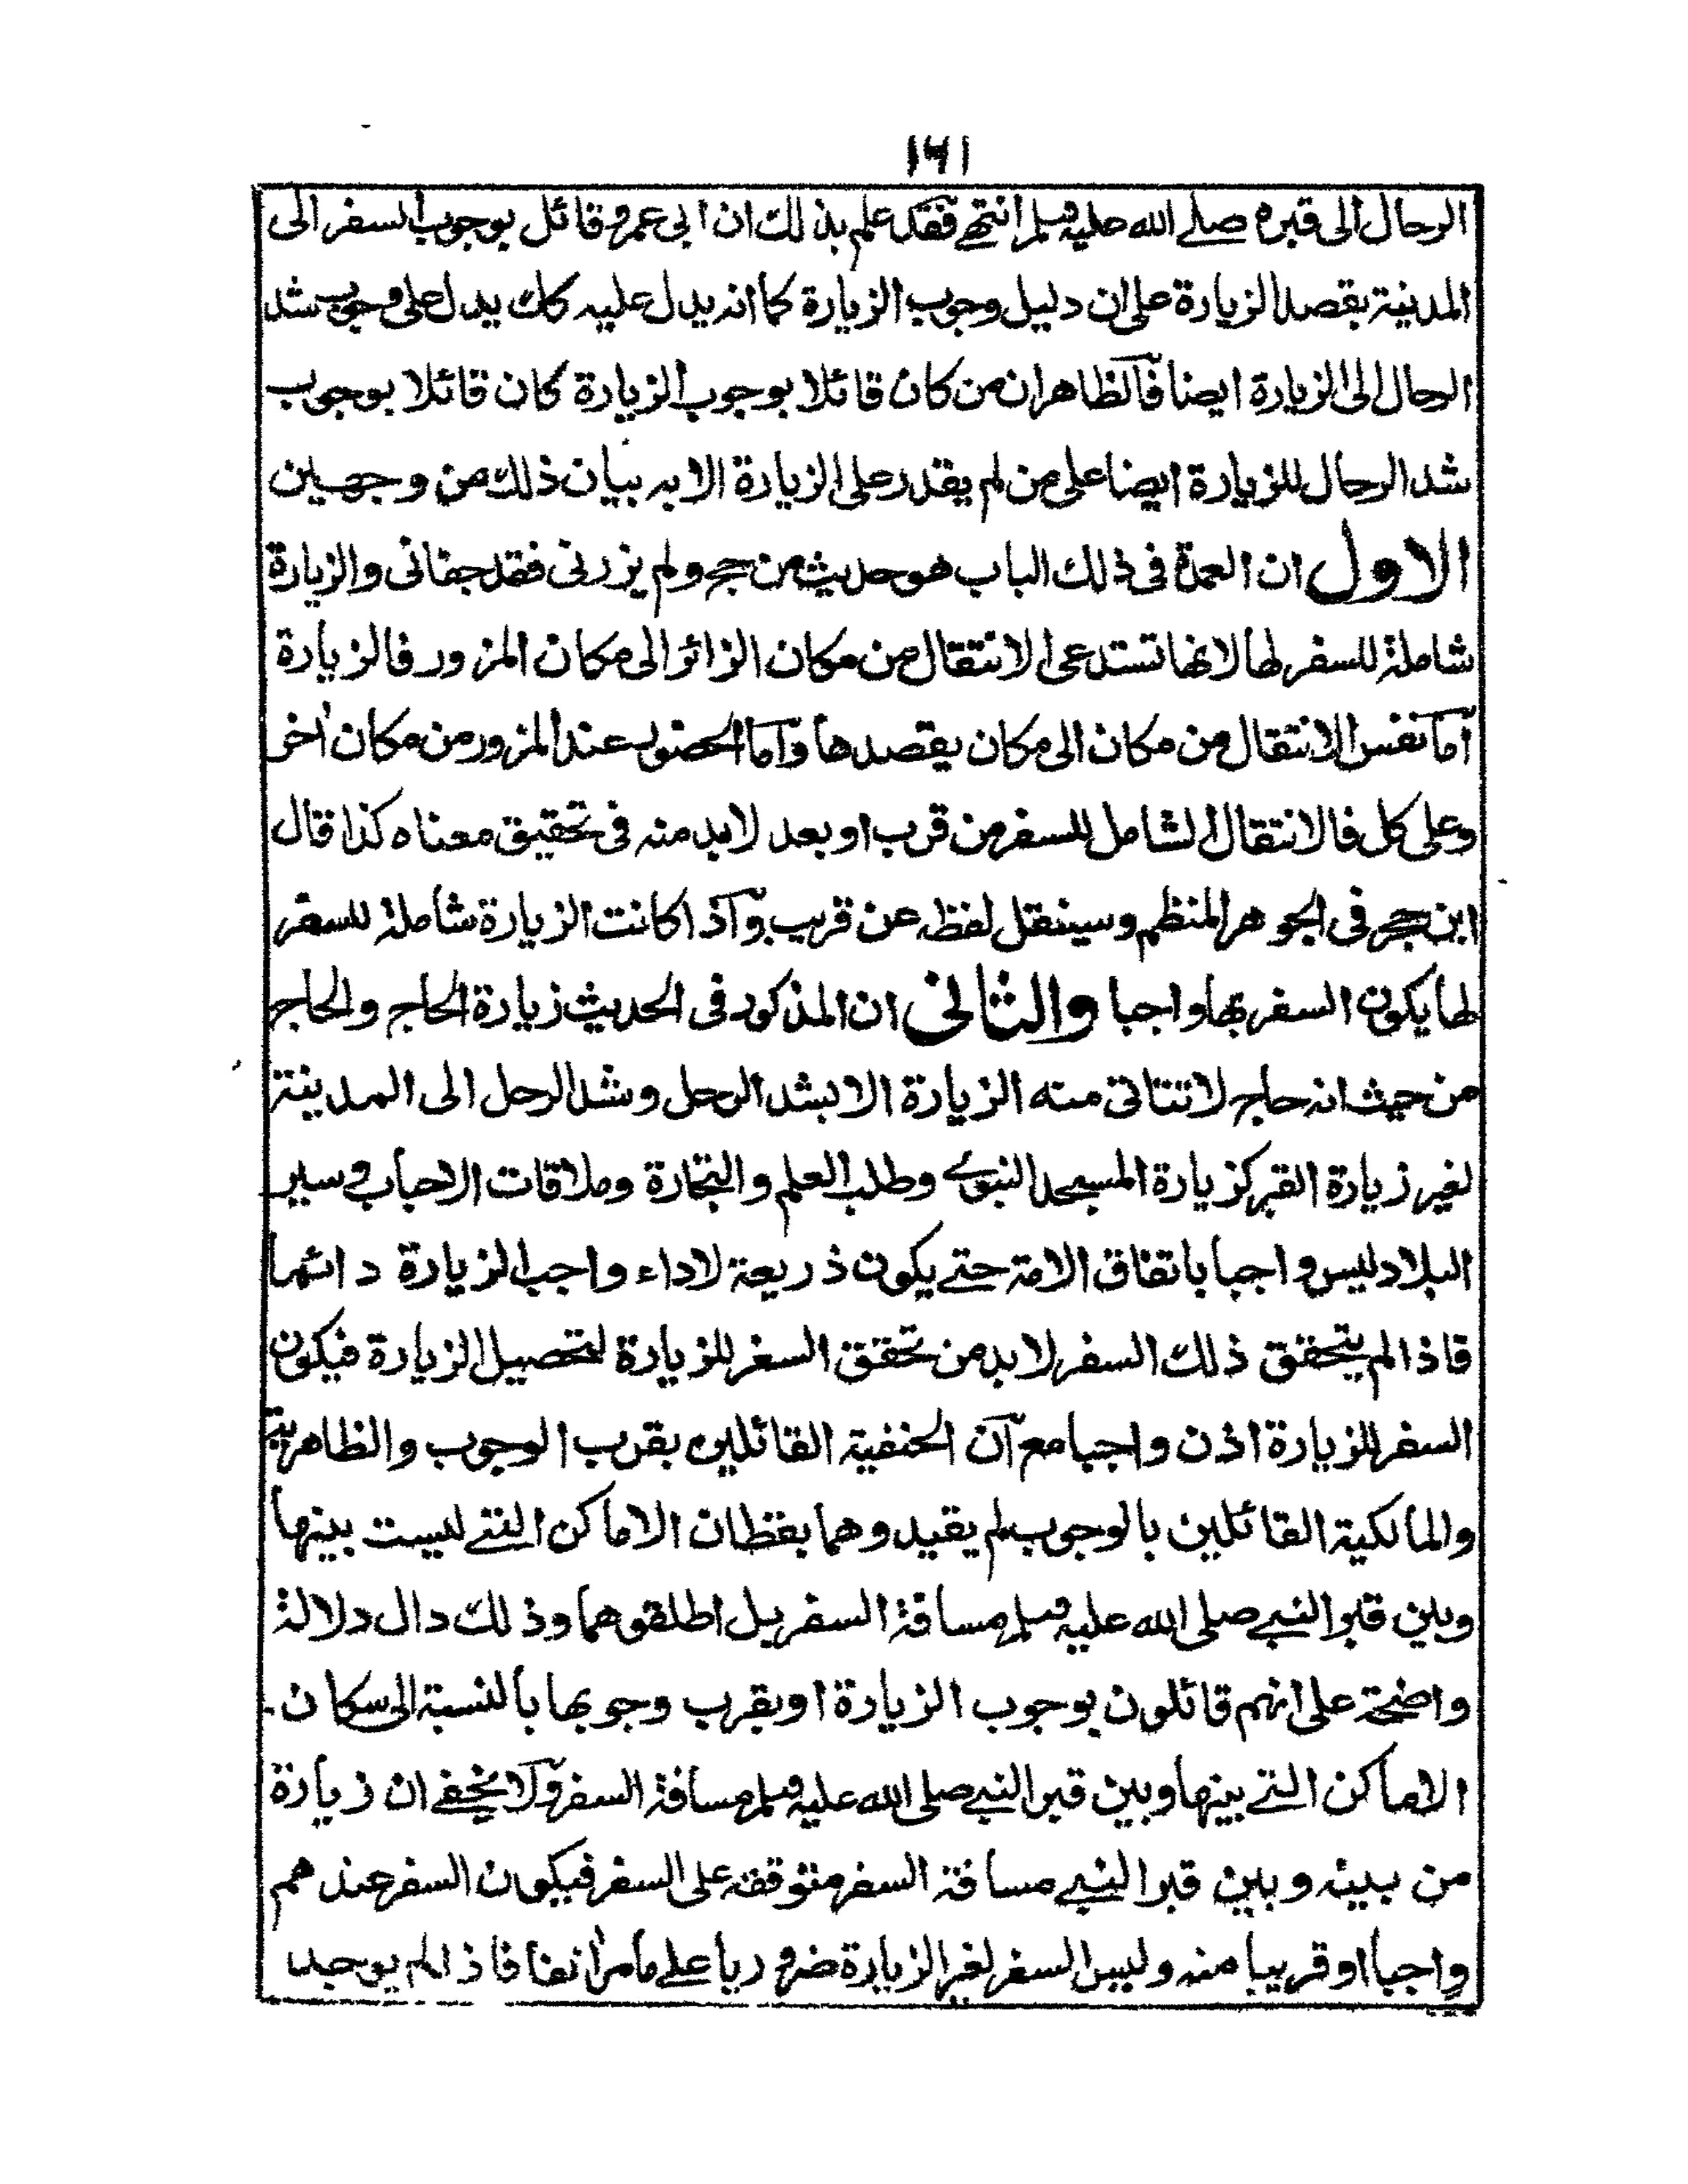 ١٦١
الرحال الى قبره صلے الله عليه وسلم انتهى فقد علم بذلك ان ابى عمرو قائل بوجوب السفر الى
المدينة بقصد الزيارة على ان دليل وجوب الزيارة كما انه يدل عليه كك يدل على وجوب شد
الرحال الى الزيارة ايضا فالظاهر ان من كان قائلا بوجوب الزيارة كان قائلا بوجوب
شد الرحال للزيارة ايضا على من لم يقدر على الزيارة الا به بيان ذلك من وجهين
الاول ان العمدة فى ذلك الباب هو حديث من حج ولم يزرنى فقد جفانى والزيارة
شاملة للسفر لها لانها تستدعى الانتقال من مكان الزائر الى مكان المزور فالزيارة
اما نفس الانتقال من مكان الى مكان يقصدها واما الحضور عند المزور من مكان اخر
وعلى كل فالانتقال الشامل للسفر من قرب او بعد لا بد منه فى تحقيق معناه كذا قال
ابن حجر فى الجوهر المنظم وسينقل لفظه عن قريب واذا كانت الزيارة شاملة للسفر
لها يكون السفر بها واجبا والثانى ان المذكور فى الحديث زيارة الحاج والحاج
من حيث انه حاج لا تتاتى منه الزيارة الا بشد الرحل وشد الرحل الى المدينة
لغير زيارة القبر كزيارة المسجد النبوے وطلب العلم والتجارة وملاقات الاحباب وسير
البلاد ليس واجبا باتفاق الامة حتے يكون ذريعة لاداء واجب الزيارة دائما
فاذا لم يتحقق ذلك السفر لا بد من تحقق السفر للزيارة لتحصيل الزيارة فيكون
السفر للزيارة اذن واجبا مع ان الحنفية القائلين بقرب الوجوب والظاهرية
والمالكية القائلين بالوجوب لم يقيدوهما بقظان الاماكن التے ليست بينها
وبين قبر النبے صلى الله عليه وسلم مسافة السفر بل اطلقوهما وذلك دال دلالة
واضحة على انهم قائلون بوجوب الزيارة او بقرب وجوبها بالنسبة الى سكان
الاماكن التے بينها وبين قبر النبے صلى الله عليه وسلم مسافة السفر ولا يخفے ان زيارة
من بينه وبين قبر النبے مسافة السفر متوقفة على السفر فيكون السفر عندهم
واجبا او قريبا منه وليس السفر لغير الزيارة ضروريا علے ما مر انفا فاذ الم يوجد